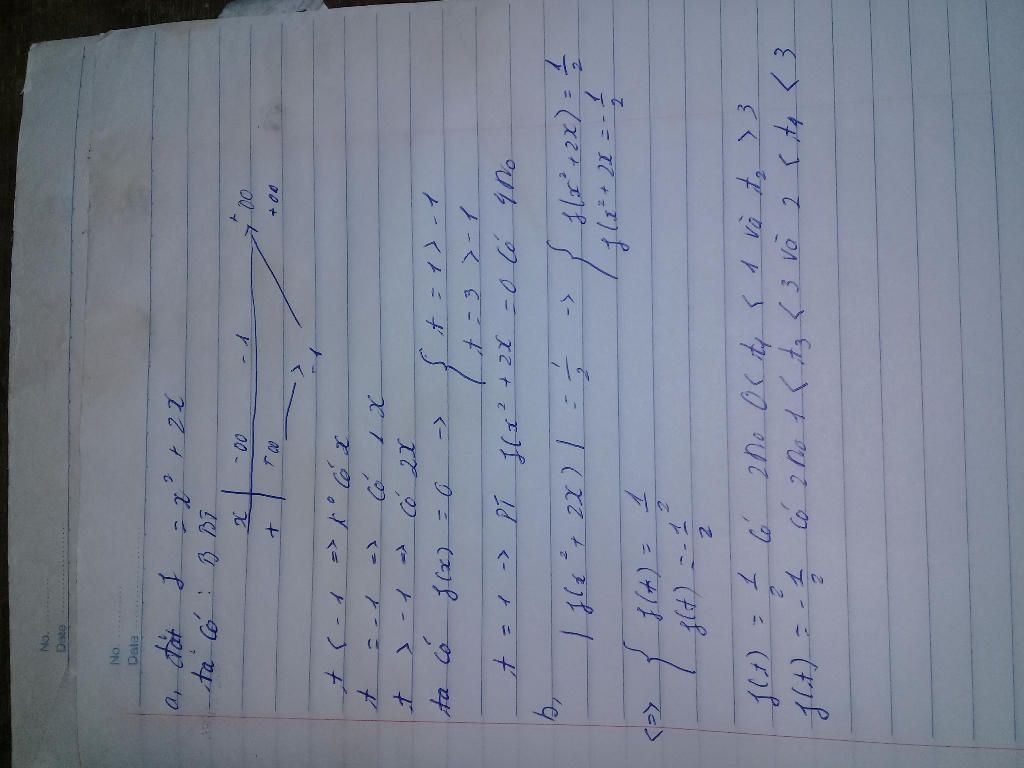 No. ..........
Date ..........
No. ..........
Date ..........
a, đặt f = x² + 2x
ta có : B BT
x | -∞ -1 +∞
t | +∞ -1 +∞
t < -1 => k° có x
t = -1 => có 1 x
t > -1 => có 2x
ta có f(x) = 0 -> { t = 1 > -1
t = 3 > -1
t = 1 -> PT f(x² + 2x = 0 có 4 no
b, | f(x² + 2x) | = 1/2 -> { f(x² + 2x) = 1/2
f(x² + 2x = -1/2
<=> { f(t) = 1/2
f(t) = -1/2
f(t) = 1/2 có 2 no 0 < t₁ < 1 và t₂ > 3
f(t) = -1/2 có 2 no 1 < t₃ < 3 và 2 < t₄ < 3